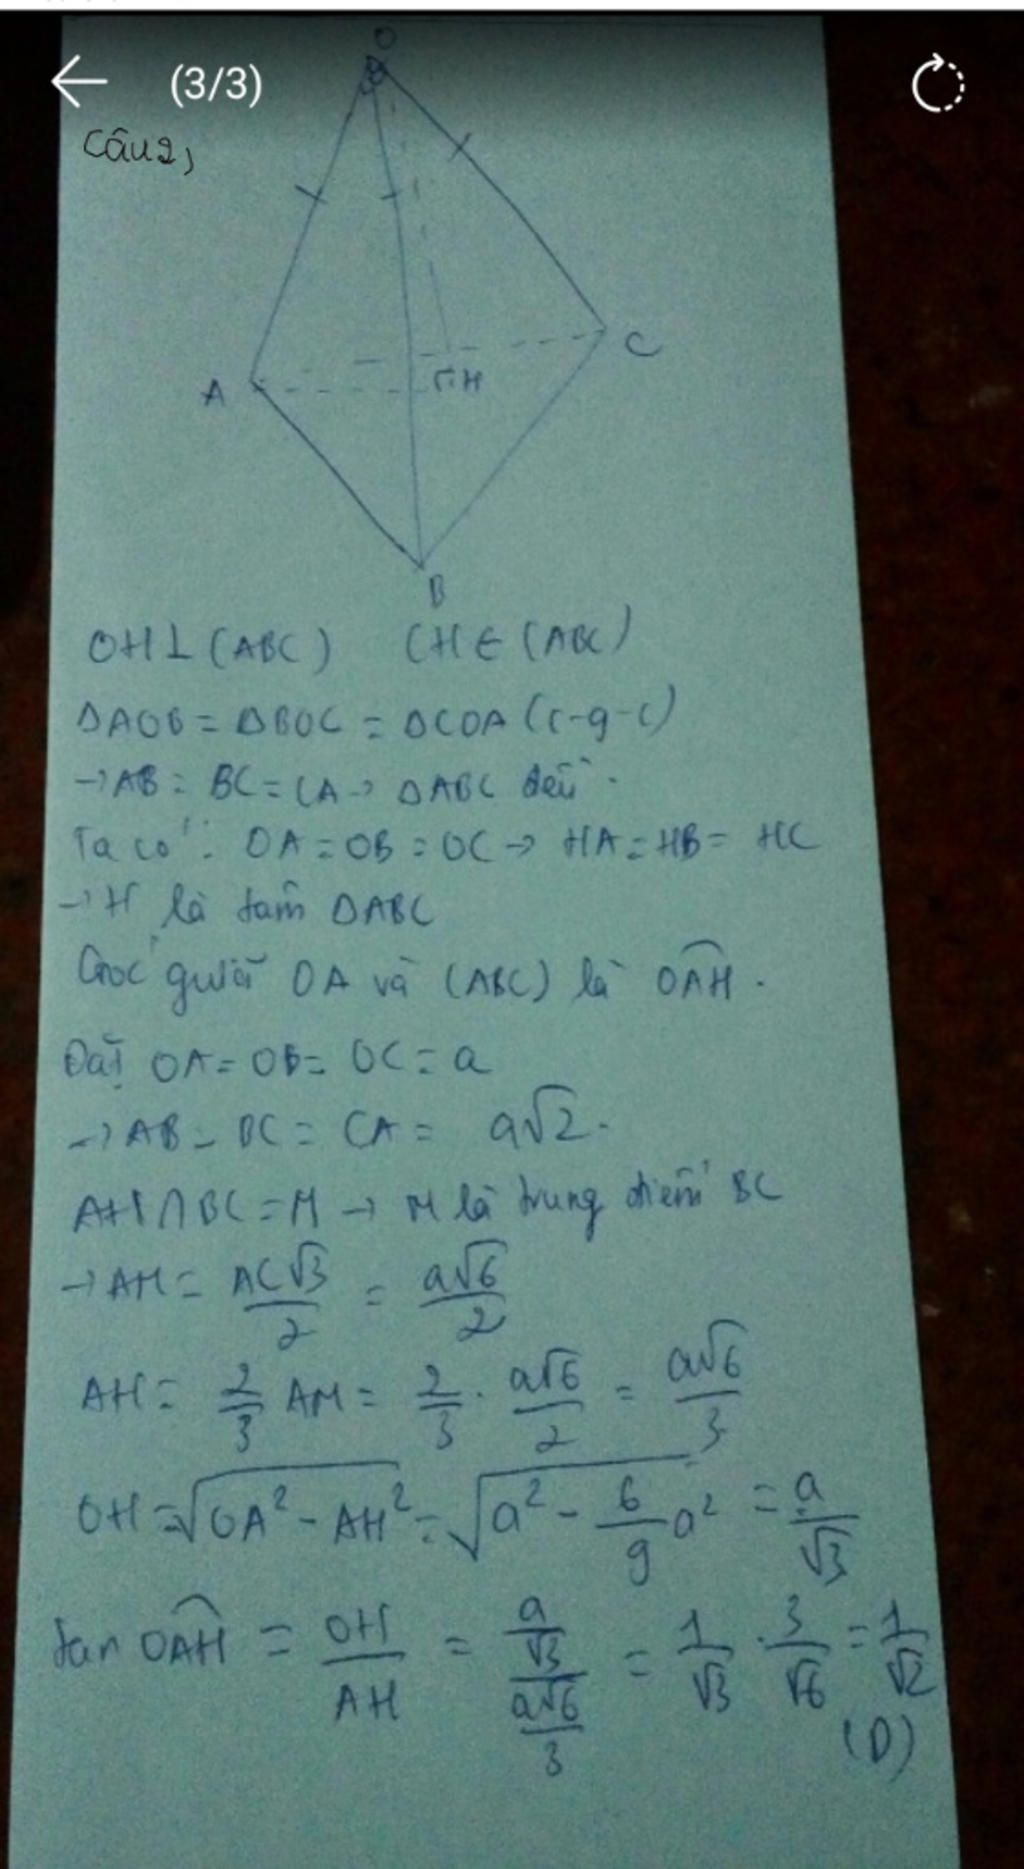 (3/3)
Câu 2,
O
A
C
H
B
OH ⊥ (ABC) (H ∈ (ABC)
ΔAOB = ΔBOC = ΔCOA (c-g-c)
→ AB = BC = CA → ΔABC đều.
Ta có: OA = OB = OC → HA = HB = HC
→ H là tâm ΔABC
Góc giữa OA và (ABC) là OAH.
Đặt OA = OB = OC = a
→ AB = BC = CA = a√2.
AH ∩ BC = M → M là trung điểm BC
→ AM = AC√3/2 = a√6/2
AH = 2/3 AM = 2/3 . a√6/2 = a√6/3
OH = √(OA² - AH²) = √(a² - 6/9 a²) = a/√3
tan OAH = OH/AH = (a/√3)/(a√6/3) = 1/√3 . 3/√6 = 1/√2
(D)